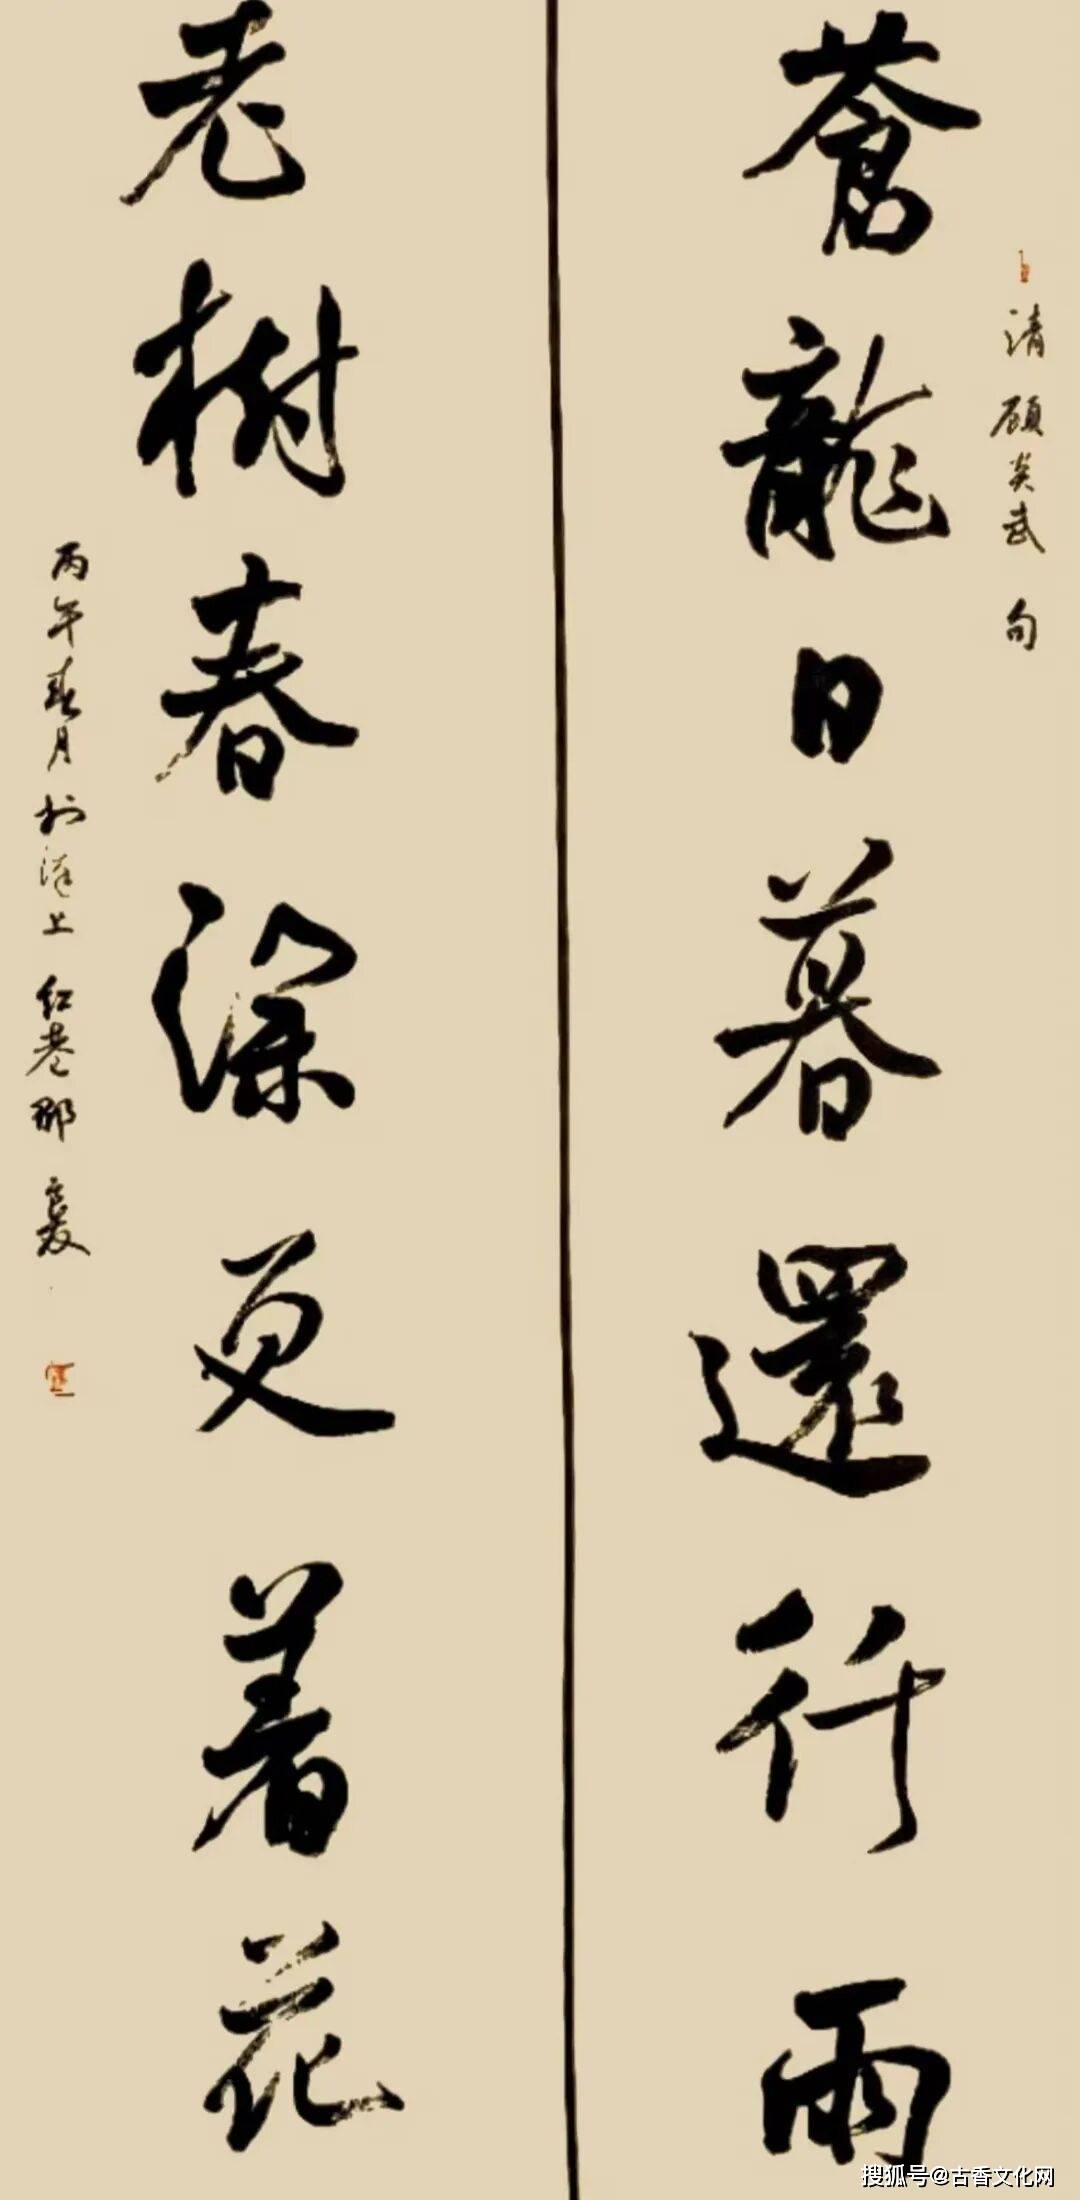 清顾炎武句
蒼龍日暮還行雨
老樹春深更着花
丙午春月於滬上紅巷鄒
搜狐号@古香文化网